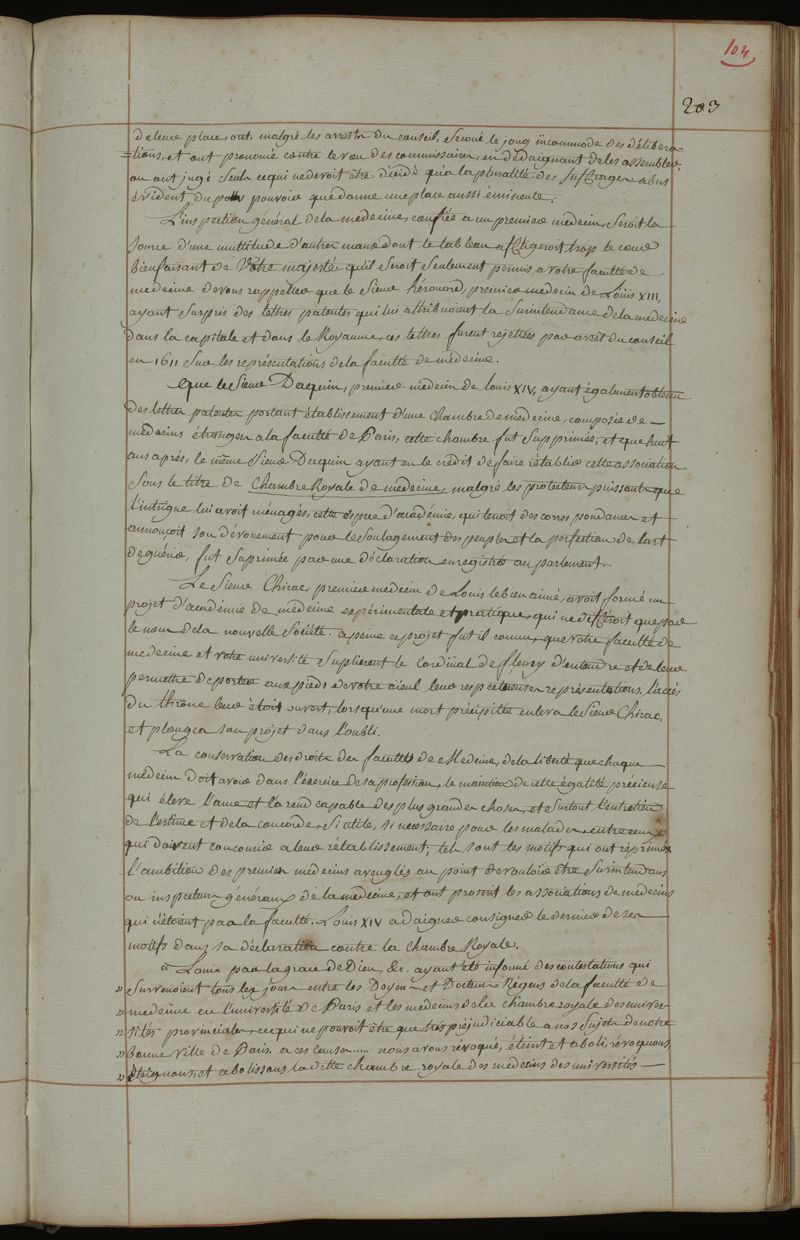 104
203
de leur place, ont, malgré les arrests du conseil, secoué le joug incommode des délibera-
=tions, et ont prononcé contre le vœu des commissaires, en dédaignant de les assembler,
ou ont jugé seuls ce qui ne devoit être décidé qu'a la pluralité des suffrages abus
évident du pouvoir que donne une place aussi éminente.
L'inspection général de la médecine, confiée a un premier medecin, seroit la
source d'une multitude d'autres maux dont le tableau affligeroit trop le cœur
bienfaisant de Votre majesté qu'il seroit seulement permis a votre faculté de
medecine de vous rappeller que le sieur hérouard, premier medecin de Louis XIII,
ayant surpris des lettres patentes qui lui attribuoient la surintendance de la medecine
dans la capitale et dans le Royaume, ces lettres furent rejettées par arrêt du conseil
en 1611 sur les représentations de la faculté de médecine.
Que le sieur Daquin, premier medecin de louis XIV, ayant également obtenu
des lettres patentes portant établissement d'une chambre de medecine, composée de —
médecins étrangers a la faculté de Paris, cette chambre fut supprimée, et que huit
ans aprés, le même sieur Daquin ayant eu le crédit de faire rétablir cette association
sous le titre de Chambre Royale de médecine, malgré les protecteurs puissants que
l'intrigue lui avoit ménagés, cette espece d'académie, qui tenoit des correspondances et
annonçoit son dévouement pour le soulagement des peuples et la perfection de l'art
de guérir, fut supprimée par une déclaration enregistrée au parlement.
Le sieur Chirac, premier medecin de Louis le bien aimé, avoit formé un
projet d'académie de médecine expérimentale et pratique, qui ne différoit que par
le nom de la nouvelle société. a peine ce projet fut il connu, que votre faculté de
medecine et votre université suplierent le Cardinal de fleury d'entendre et de leur
permettre de porter aux pieds de votre aieul leurs respectueuses représentations, l'accés
du throne leur étoit ouvert, lorsqu'une mort précipitée enleva le sieur Chirac,
et plongea son projet dans l'oubli.
La conservation des droits des facultés de Medecine, de la liberté que chaque —
médecin doit avoir dans l'exercice de sa profession, le maintien de cette égalité précieuse
qui éleve l'ame et la rend capable des plus grandes choses, et surtout l'entretien
de l'estime et de la concorde, si utile, si necessaire pour les malades, entre ceux
qui doivent concourir a leur rétablissement, tels sont les motifs qui ont réprimés
l'ambition des premiers médecins aveuglés au point de vouloir être surintendans
ou inspecteurs généraux de la médecine, et ont proscrit les associations de médecins
qui n'étoient pas la faculté. Louis XIV a daigné consigner le dernier de ses
motifs dans sa déclaration contre la chambre Royale.
« Louis par la grace de Dieu, &c. ayant été informé des contestations qui
» surviennent tous les jours entre les Doyen et Docteurs Régens de la faculté de
» medecine en l'université de Paris et les medecins de la chambre royale des univer-
» sités provinciales, ce qui ne pouvoit être que très préjudiciable a nos sujets de notre
» bonne ville de Paris. a ces causes..... nous avons révoqué, éteint et aboli, révoquons,
» éteignons, et abolissons la ditte chambre royale des medecins des universités —